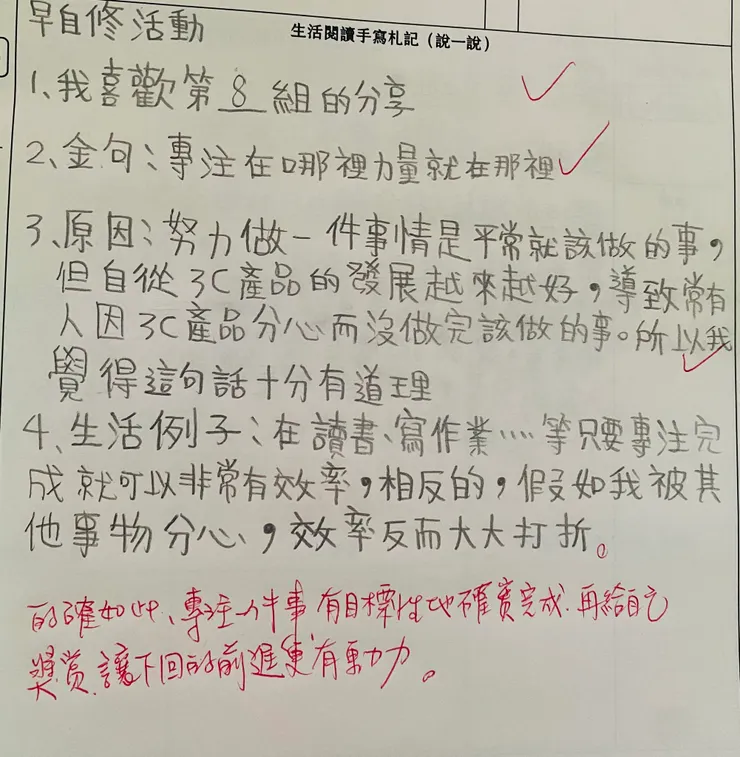 早自修活動
生活閱讀手寫札記（說一說）
1、我喜歡第 8 組的分享
2、金句：專注在哪裡力量就在那裡
3、原因：努力做一件事情是平常就該做的事，
但自從3C產品的發展越來越好，導致常有
人因3C產品分心而沒做完該做的事。所以我
覺得這句話十分有道理
4、生活例子：在讀書、寫作業……等只要專注完
成就可以非常有效率，相反的，假如我被其
他事物分心，效率反而大大打折。
的確如此、專注一件事有目標性地確實完成.再給自己
獎賞.讓下回的前進更有動力。